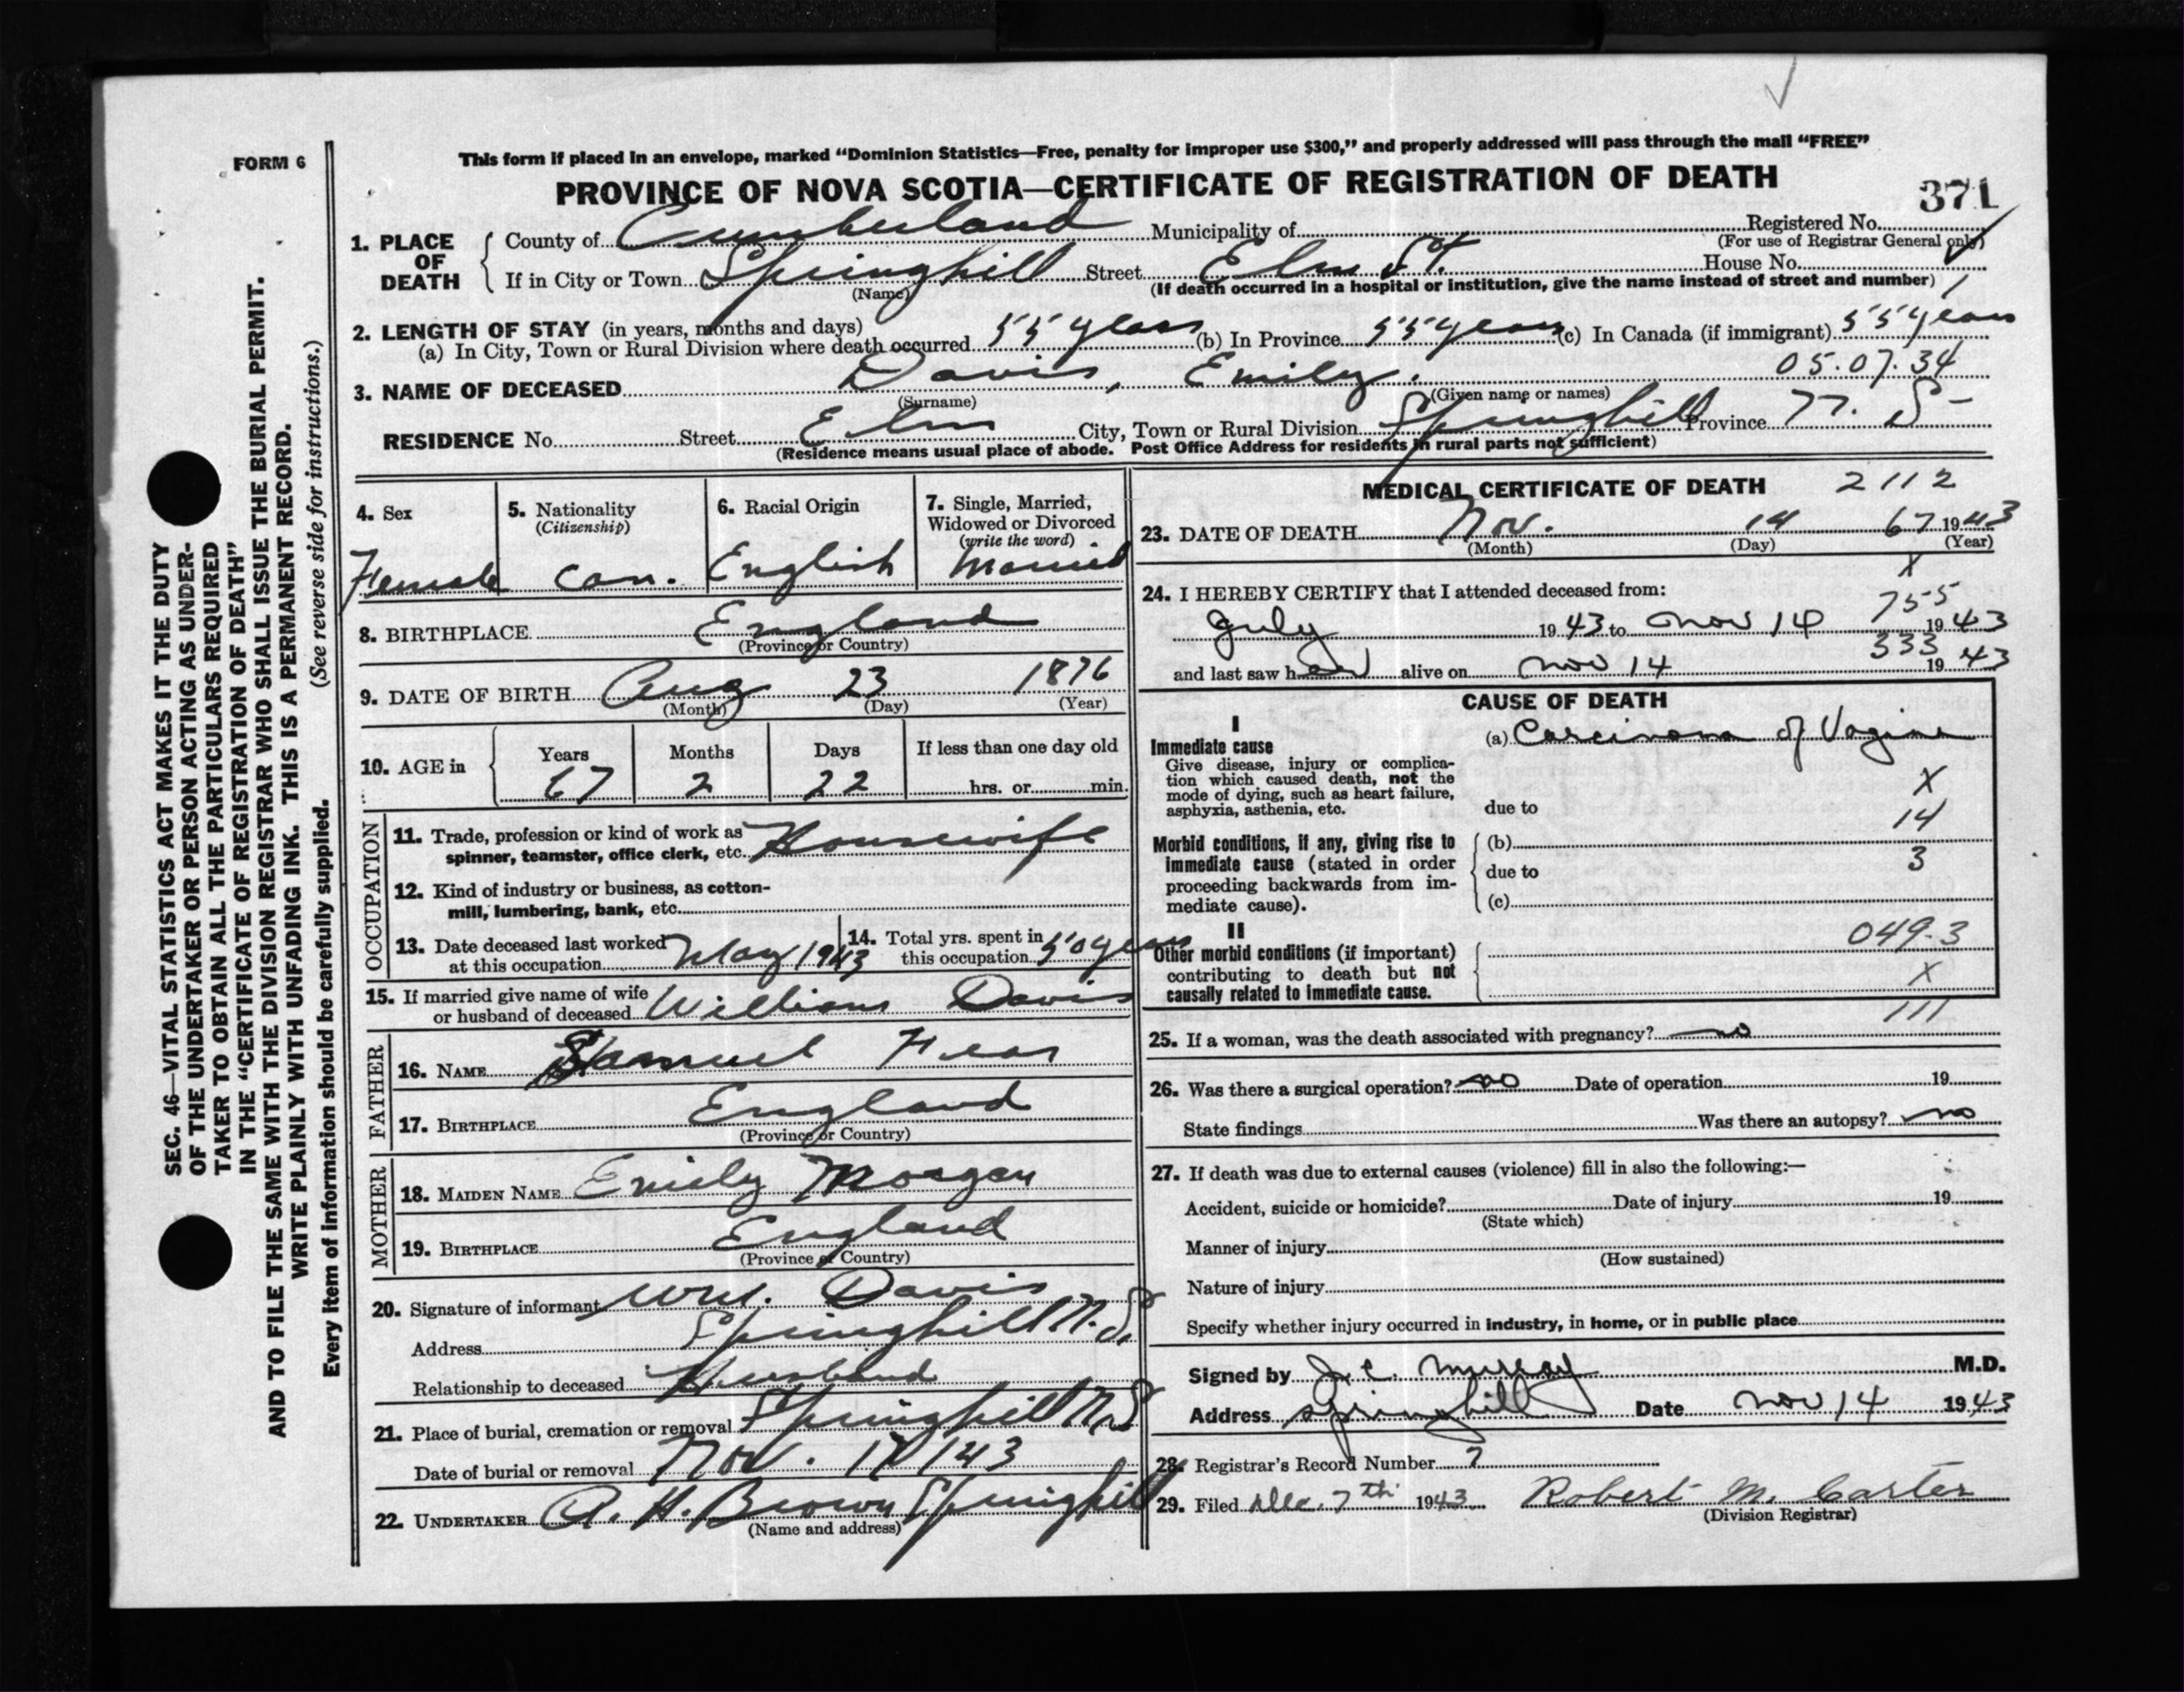 FORM 6
This form if placed in an envelope, marked “Dominion Statistics—Free, penalty for improper use $300,” and properly addressed will pass through the mail “FREE”
PROVINCE OF NOVA SCOTIA—CERTIFICATE OF REGISTRATION OF DEATH
371
Registered No.
(For use of Registrar General only)
1. PLACE OF DEATH
County of Cumberland Municipality of
If in City or Town Springhill Street Elm St. House No.
(Name) (If death occurred in a hospital or institution, give the name instead of street and number)
2. LENGTH OF STAY (in years, months and days)
(a) In City, Town or Rural Division where death occurred 55 years (b) In Province 55 years (c) In Canada (if immigrant) 55 years
05.07.34
3. NAME OF DECEASED Davis, Emily.
(Surname) (Given name or names)
RESIDENCE No. Street Elm City, Town or Rural Division Springhill Province N. S-
(Residence means usual place of abode. Post Office Address for residents in rural parts not sufficient)
4. Sex Female
5. Nationality (Citizenship) Can.
6. Racial Origin English
7. Single, Married, Widowed or Divorced (write the word) Married
8. BIRTHPLACE England
(Province or Country)
9. DATE OF BIRTH Aug 23 1876
(Month) (Day) (Year)
10. AGE in Years Months Days If less than one day old
67 2 22 hrs. or min.
OCCUPATION
11. Trade, profession or kind of work as spinner, teamster, office clerk, etc. Housewife
12. Kind of industry or business, as cotton-
mill, lumbering, bank, etc.
13. Date deceased last worked at this occupation May 1943
14. Total yrs. spent in this occupation 50 years
15. If married give name of wife or husband of deceased William Davis
FATHER
16. NAME Samuel Fear
17. BIRTHPLACE England
(Province or Country)
MOTHER
18. MAIDEN NAME Emily Morgan
19. BIRTHPLACE England
(Province or Country)
20. Signature of informant Wm. Davis
Address Springhill N.S.
Relationship to deceased Husband
21. Place of burial, cremation or removal Springhill N.S
Date of burial or removal Nov. 17/43
22. UNDERTAKER A. H. Brown Springhill
(Name and address)
MEDICAL CERTIFICATE OF DEATH 2112
23. DATE OF DEATH Nov. 14 67 1943
(Month) (Day) (Year)
X
24. I HEREBY CERTIFY that I attended deceased from:
755
July 1943 to Nov 14 1943
333
and last saw her alive on Nov 14 1943
CAUSE OF DEATH
I
Immediate cause
(a) Carcinoma of Vagina
Give disease, injury or complica-
tion which caused death, not the
mode of dying, such as heart failure,
asphyxia, asthenia, etc.
due to
X
14
Morbid conditions, if any, giving rise to
immediate cause (stated in order
proceeding backwards from im-
mediate cause).
(b)
due to
3
(c)
II
Other morbid conditions (if important)
contributing to death but not
causally related to immediate cause.
049.3
X
111
25. If a woman, was the death associated with pregnancy? no
26. Was there a surgical operation? no Date of operation 19
State findings Was there an autopsy? no
27. If death was due to external causes (violence) fill in also the following:—
Accident, suicide or homicide? Date of injury 19
(State which)
Manner of injury
(How sustained)
Nature of injury
Specify whether injury occurred in industry, in home, or in public place
Signed by J. C. Murray M.D.
Address Springhill Date Nov 14 1943
28. Registrar's Record Number 7
29. Filed Dec. 7th 1943 Robert M. Carter
(Division Registrar)
SEC. 46—VITAL STATISTICS ACT MAKES IT THE DUTY
OF THE UNDERTAKER OR PERSON ACTING AS UNDER-
TAKER TO OBTAIN ALL THE PARTICULARS REQUIRED
IN THE “CERTIFICATE OF REGISTRATION OF DEATH”
AND TO FILE THE SAME WITH THE DIVISION REGISTRAR WHO SHALL ISSUE THE BURIAL PERMIT.
WRITE PLAINLY WITH UNFADING INK. THIS IS A PERMANENT RECORD.
Every item of information should be carefully supplied. (See reverse side for instructions.)